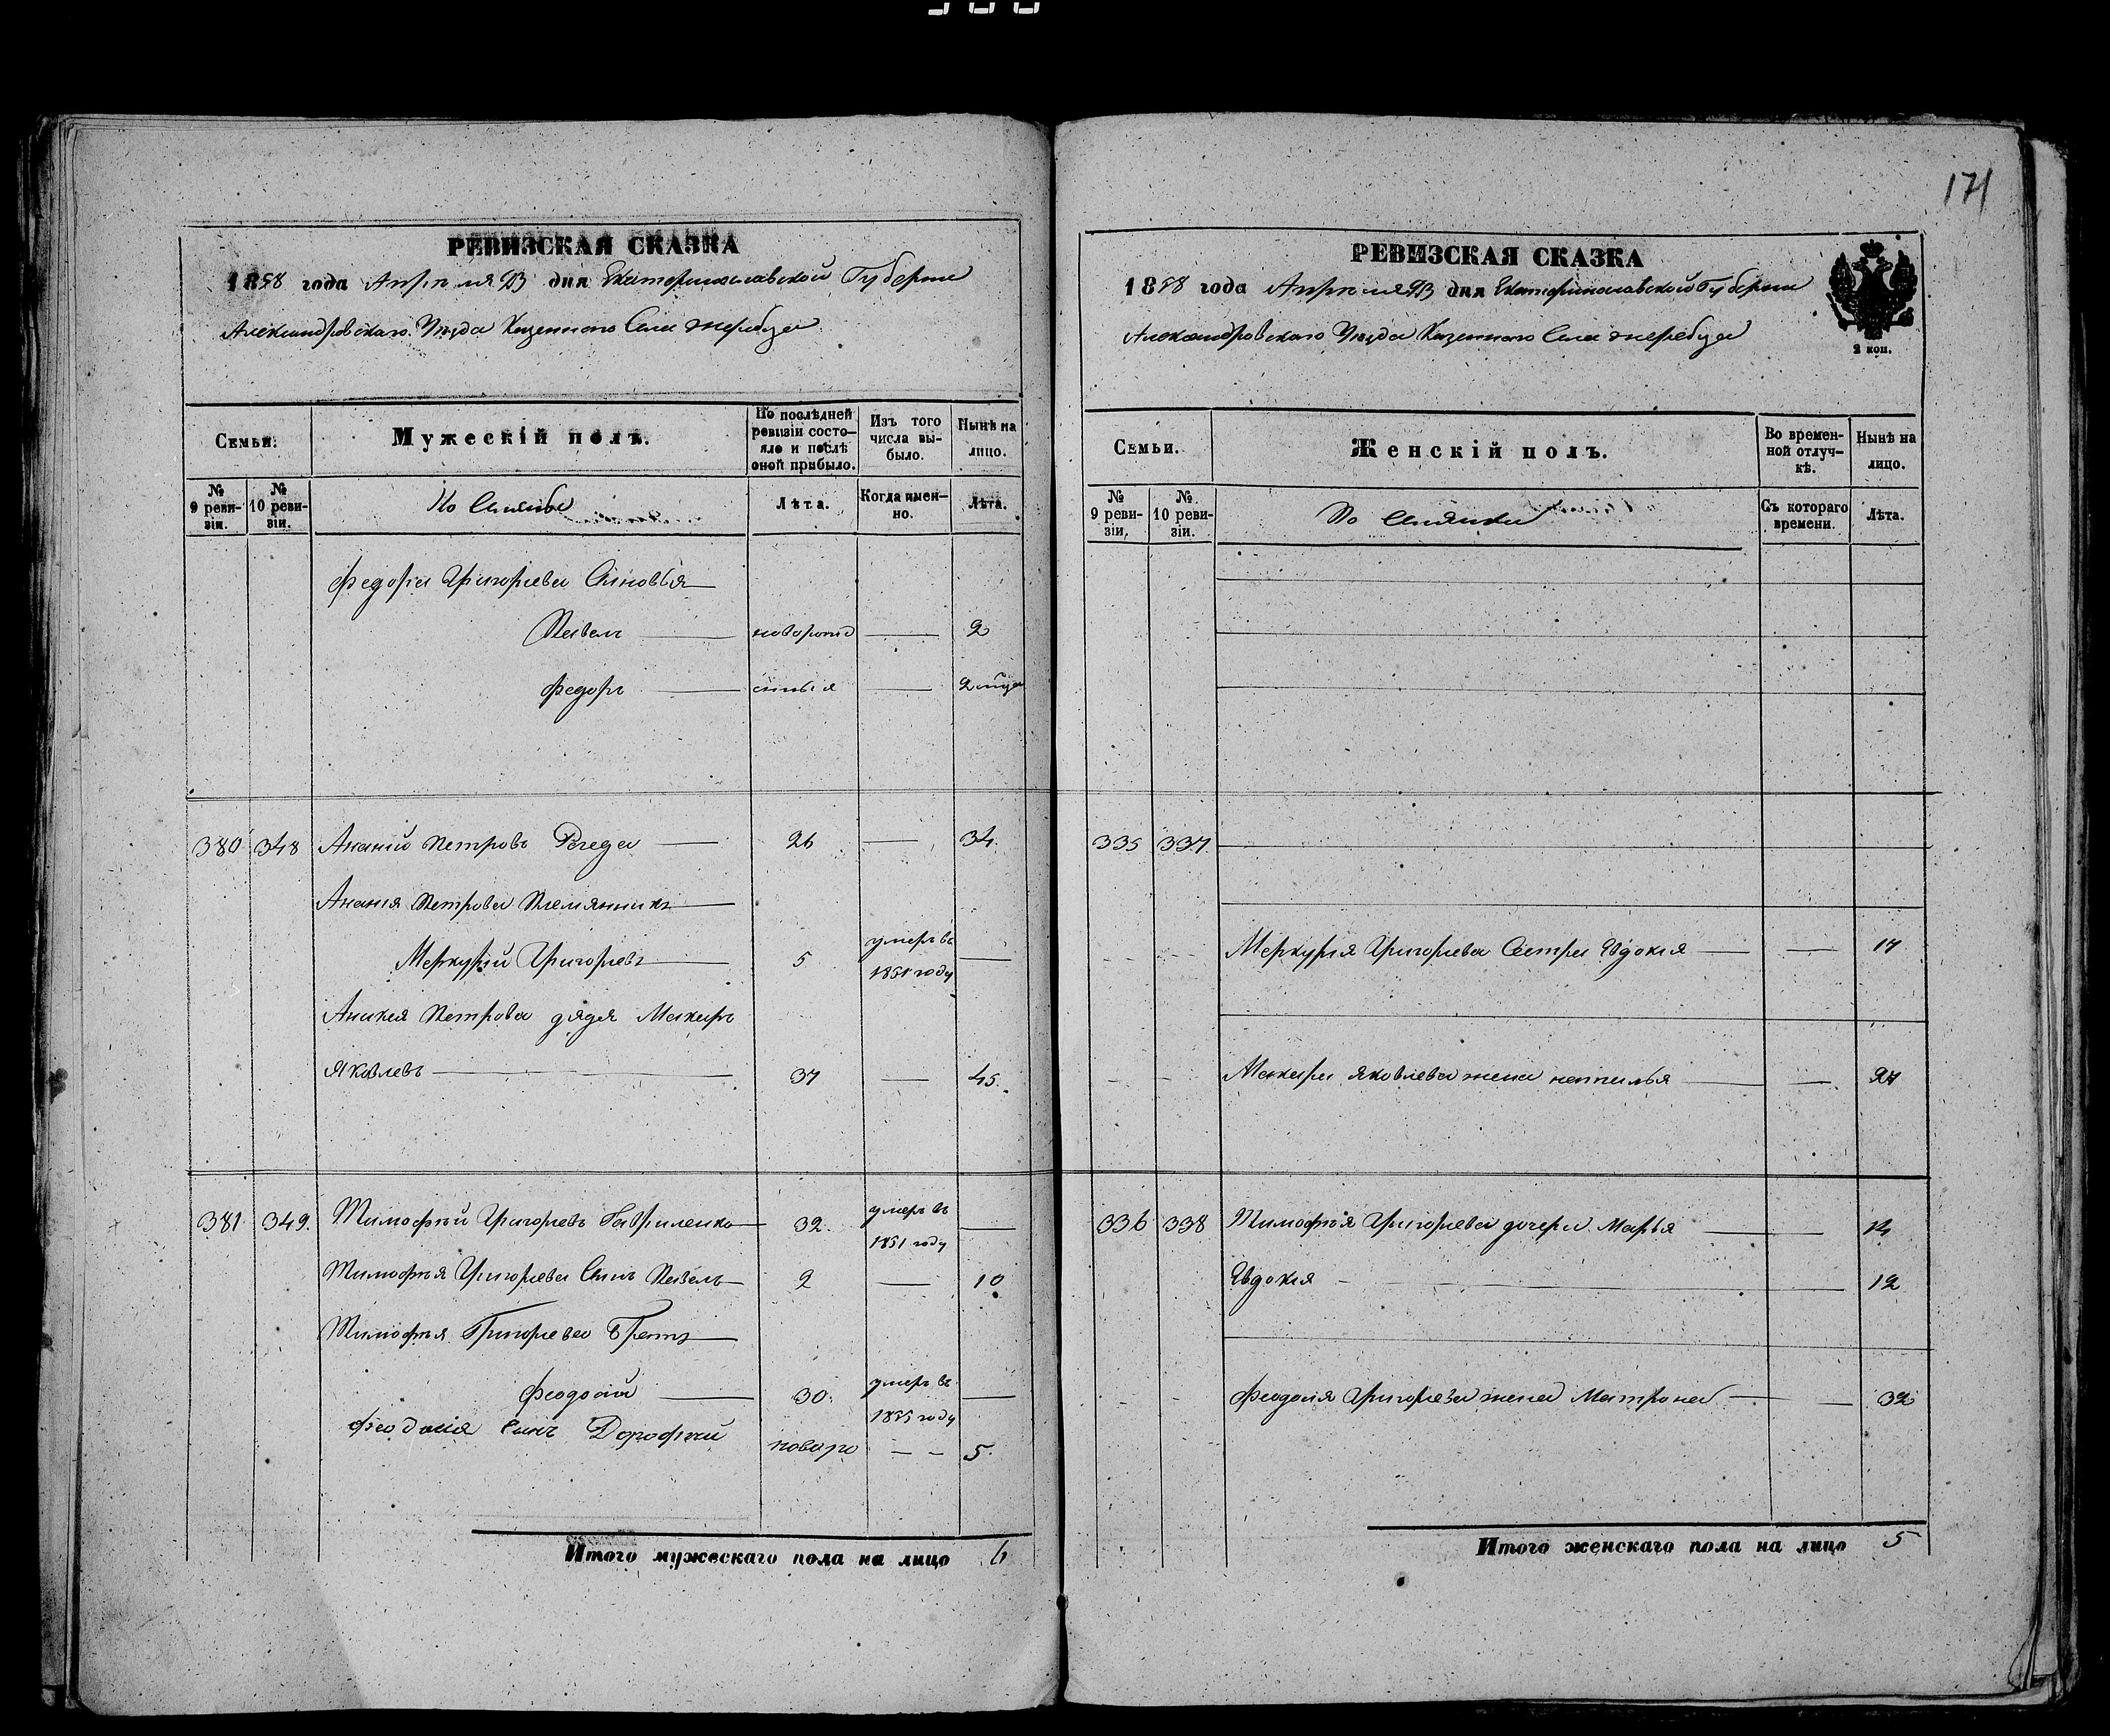 171
РЕВИЗСКАЯ СКАЗКА
1858 года Апреля дня Екатеринославской Губерніи
Александровскаго Уѣзда Казеннаго Села Жеребца
Семьи. Мужескій полъ. По послѣдней ревизіи состояло и послѣ оной прибыло. Изъ того числа выбыло. Нынѣ на лицо.
№ 9 ревизіи. № 10 ревизіи. Лѣта. Когда именно. Лѣта.
Федора Григорьева Сыновья
Павелъ новорож 2
Федоръ 2
380 348 Ананій Петровъ Регеда 26 34.
Ананія Петрова Племянникъ
Меркурій Григорьевъ 5 умеръ въ 1851 году
Ананія Петрова дядя Макаръ
Яковлевъ 37 45.
381 349. Тимофѣй Григорьевъ Гавриленко 32. умеръ въ 1851 году
Тимофѣя Григорьева Сынъ Павелъ 2 10
Тимофѣя Григорьева Братъ
Феодосій 30. умеръ въ 1855 году
Феодосія Сынъ Дорофѣй новоро 5.
Итого мужескаго пола на лицо 6
РЕВИЗСКАЯ СКАЗКА
1858 года Апреля дня Екатеринославской Губерніи
Александровскаго Уѣзда Казеннаго Села Жеребца
2 коп.
Семьи. Женскій полъ. Во временной отлучкѣ. Нынѣ на лицо.
№ 9 ревизіи. № 10 ревизіи. Съ котораго времени. Лѣта.
335 337.
Меркурія Григорьева Сестра Евдокія 17
Макара Яковлева жена Наталья 27
336 338 Тимофѣя Григорьева дочери Марья 14
Евдокія 12
Феодосія Григорьева жена Матрона 32
Итого женскаго пола на лицо 5